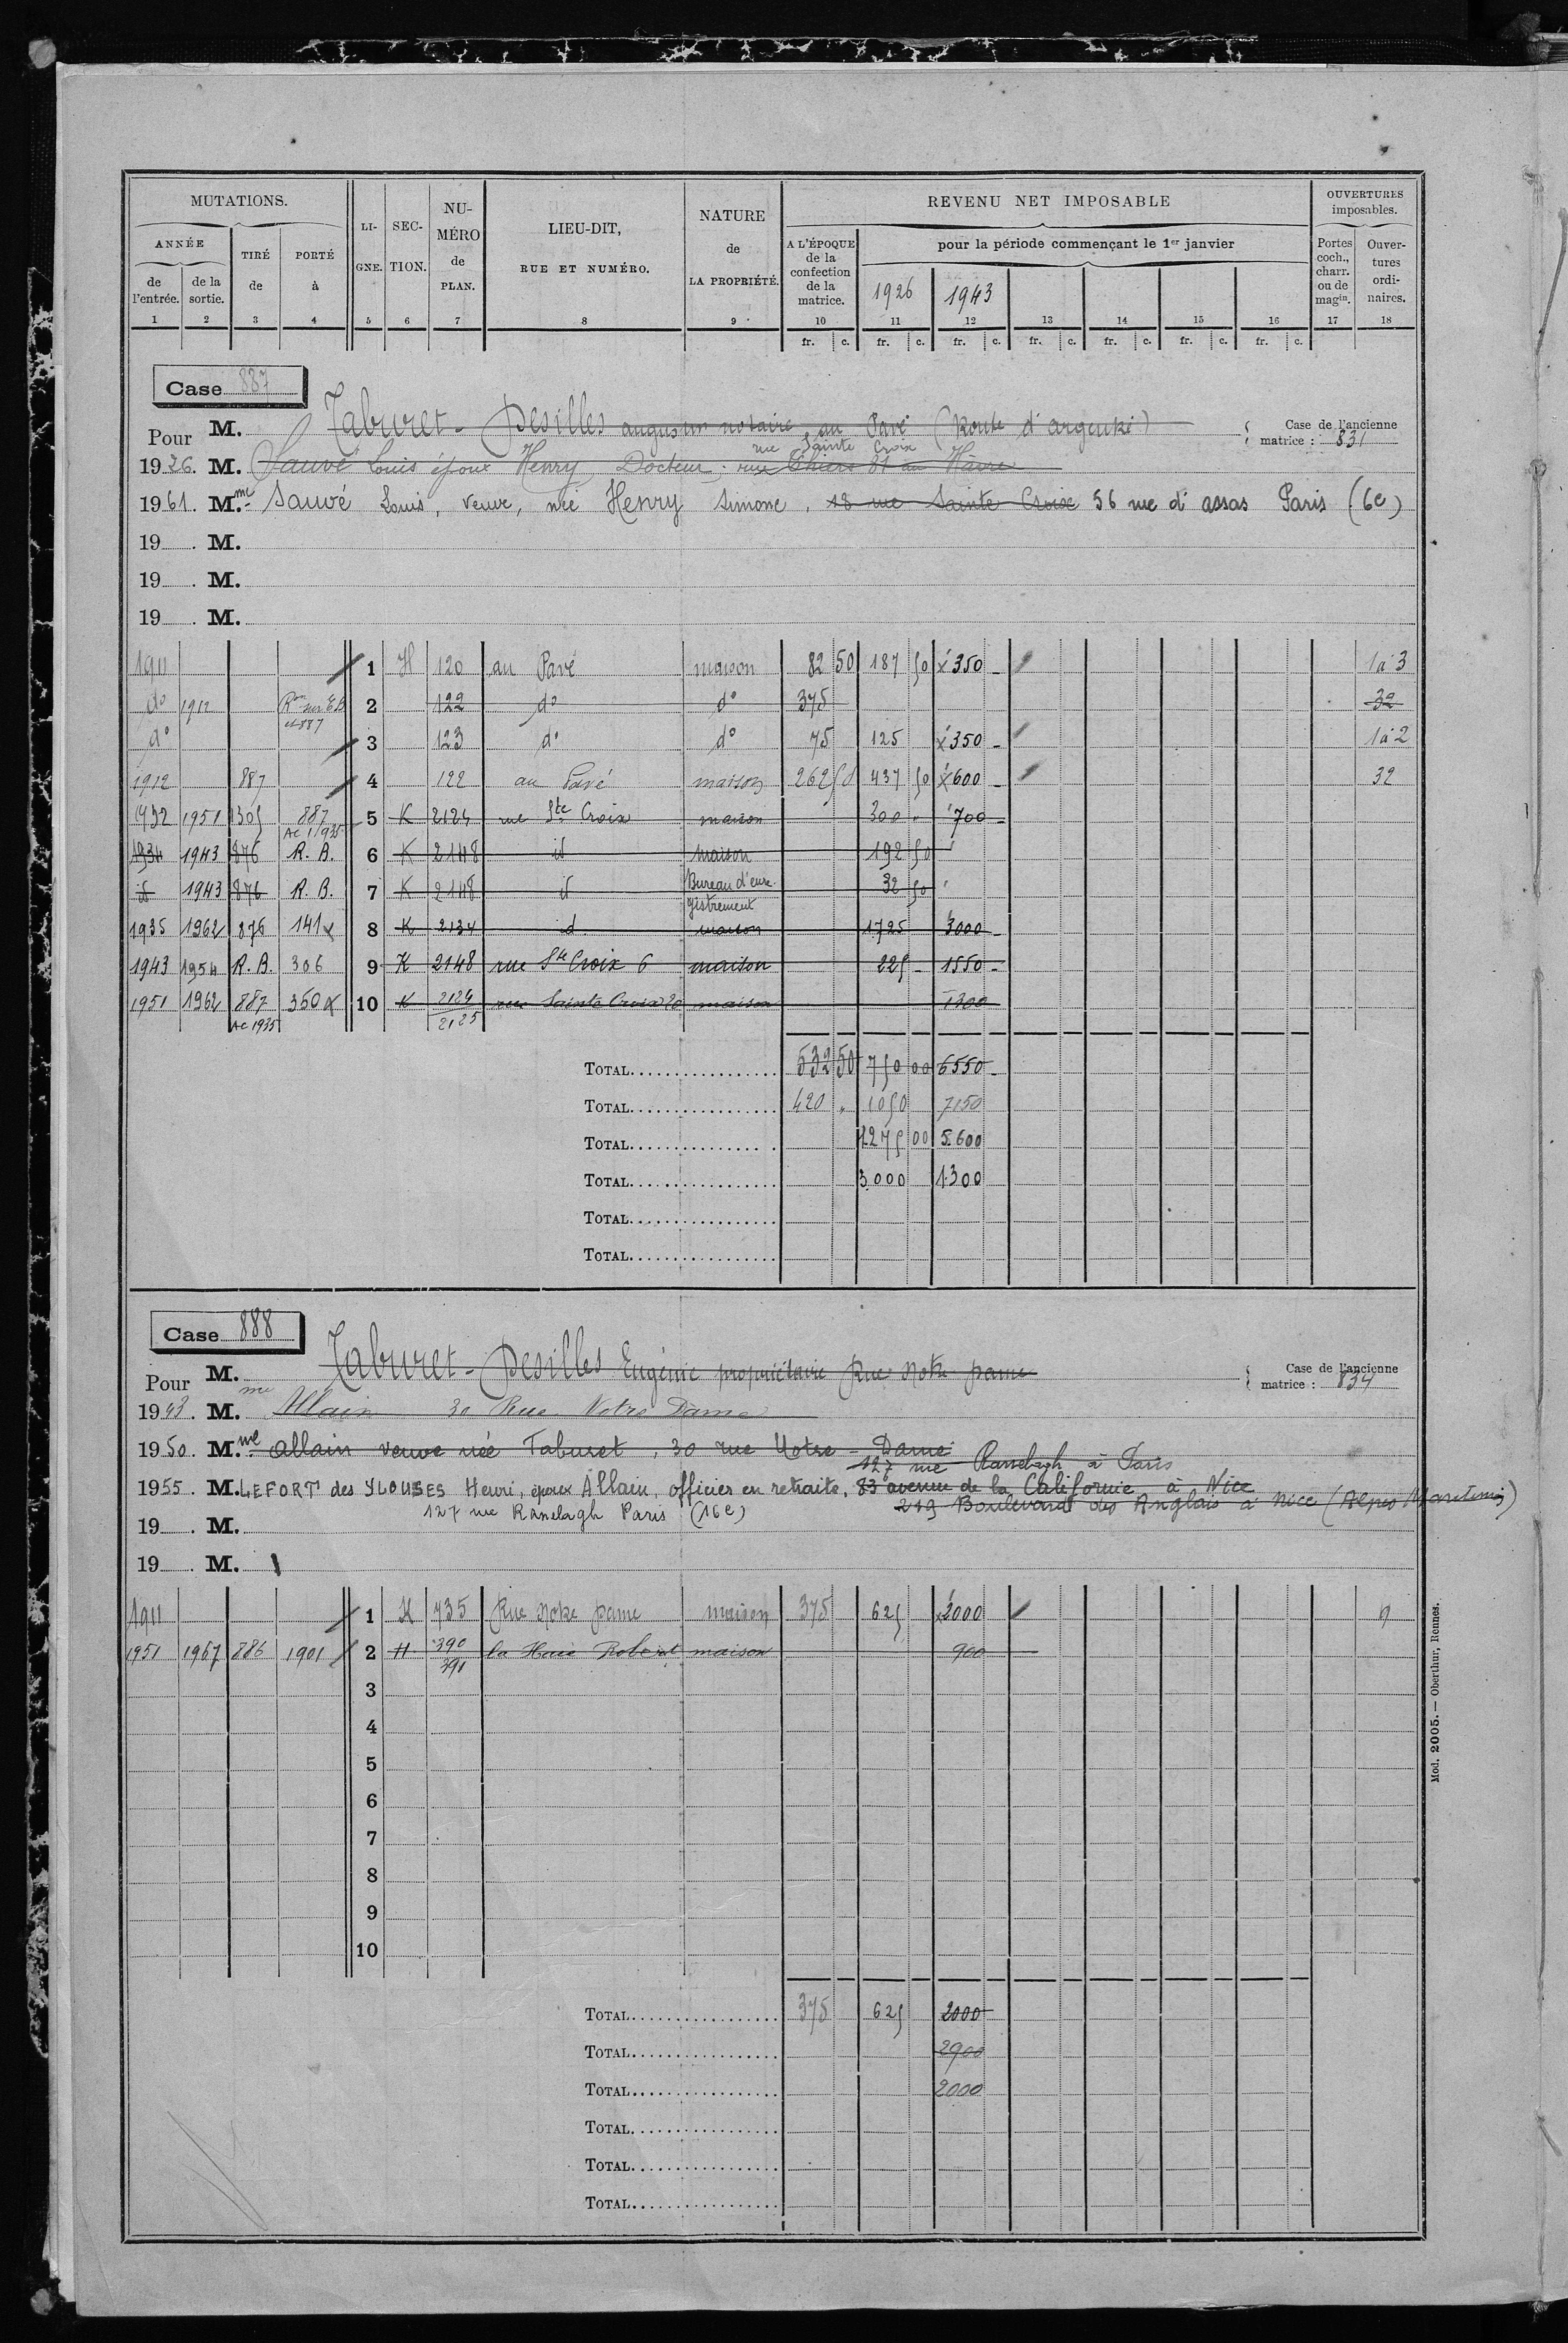 MUTATIONS.
ANNÉE
de l'entrée.
de la sortie.
TIRÉ de
PORTÉ à
LI-GNE.
SEC-TION.
NU-MÉRO de PLAN.
LIEU-DIT, RUE ET NUMÉRO.
NATURE de LA PROPRIÉTÉ.
REVENU NET IMPOSABLE
A L'ÉPOQUE de la confection de la matrice.
pour la période commençant le 1er janvier
1926 1943
OUVERTURES imposables.
Portes coch., charr. ou de magin.
Ouver-tures ordi-naires.
1 2 3 4 5 6 7 8 9 10 11 12 13 14 15 16 17 18
fr. c. fr. c. fr. c. fr. c. fr. c. fr. c. fr. c.
Case 887
Pour M. Taburet-Desilles augustin notaire au Pavé (Route d'argentré)
Case de l'ancienne matrice : 831
rue Sainte Croix
1926. M. Sauvé Louis époux Henry Docteur. rue Thiers 81 au Hâvre
1961. M.me Sauvé Louis, veuve, née Henry Simone, 18 rue Sainte Croix 56 rue d'assas Paris (6e)
19 . M.
19 . M.
19 . M.
1911 1 H 120 au Pavé maison 82 50 187 50 x 350 - 1 à 3
do 1912 Ron sur E.B. et 887 2 122 do do 375 32
do 3 123 do do 75 125 x 350 - 1 à 2
1912 887 4 122 au Pavé maison 262 50 437 50 x 600 - 32
1932 1951 305 887 Ac 1/935 5 K 2124 rue Ste Croix maison 300 " 700 -
1934 1943 876 R.B. 6 K 2148 id maison 192 50
id 1943 876 R.B. 7 K 2148 id Bureau d'enregistrement 32 50
1935 1962 876 141x 8 K 2134 id maison 1725 3000 -
1943 1954 R.B. 306 9 K 2148 rue Ste Croix 6 maison 225 - 1550 -
1951 1962 887 Ac 1935 350x 10 K 2124 2125 rue Sainte Croix 20 maison 1300
TOTAL 532 50 750 00 6550 -
TOTAL 420 " 1050 7150
TOTAL 1275 00 5.600
TOTAL 3.000 1300
TOTAL
TOTAL
Case 888
Pour M. Taburet-Desilles Eugénie propriétaire Rue Notre Dame
Case de l'ancienne matrice : 834
1943. M.me Allain 30 Rue Notre Dame
1950. M.me Allain veuve née Taburet, 30 rue Notre-Dame
127 rue Ranelagh à Paris
1955. M. LEFORT des YLOUSES Henri, époux Allain, officier en retraite, 83 avenue de la Californie à Nice
219 Boulevard des Anglais à Nice (Alpes Maritimes)
127 rue Ranelagh Paris (16e)
19 . M.
19 . M.
1911 1 K 735 Rue Notre Dame maison 375 625 x2000 9
1951 1967 886 1901 2 H 390 391 la Haie Robert maison 900
3
4
5
6
7
8
9
10
TOTAL 375 625 2000
TOTAL 2900
TOTAL 2000
TOTAL
TOTAL
TOTAL
Mod. 2005. — Oberthur, Rennes.